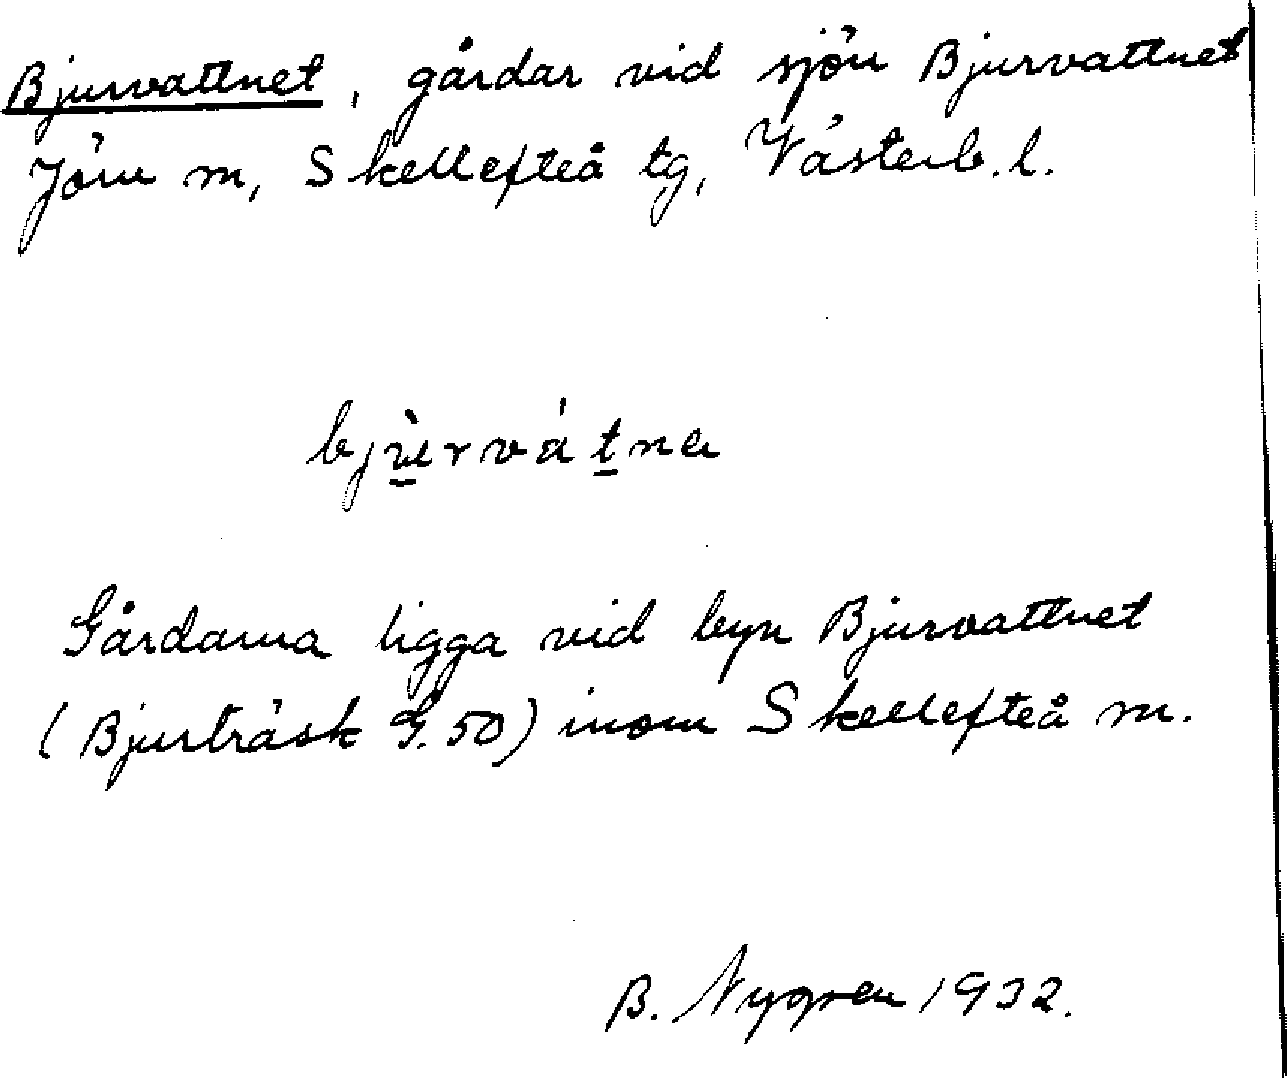 Bjurvattnet, gårdar vid sjön Bjurvattnet
Jörn m, Skellefteå tg, Västerb. l.
bjùrvátna
Gårdarna ligga vid byn Bjurvattnet
(Bjurträsk G. 50) inom Skellefteå m.
B. Nygren 1932.